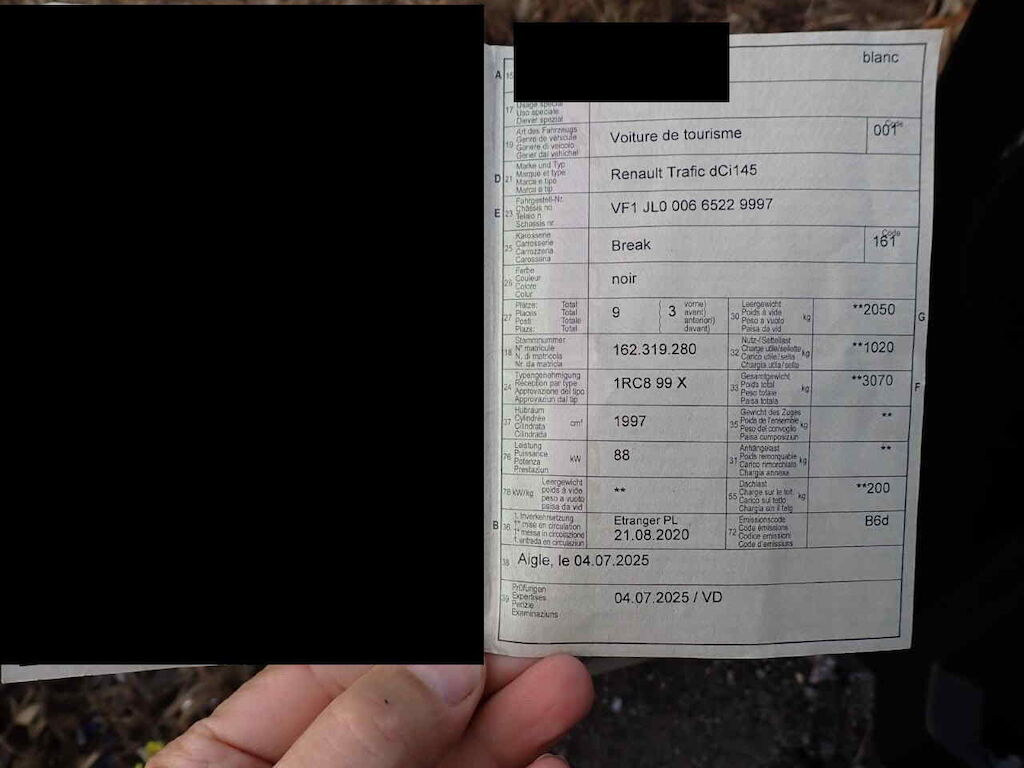 blanc
A 15
17 Usage spécial
Uso speciale
Diever spezial
19 Art des Fahrzeugs
Genre de véhicule
Genere di veicolo
Gener dal vehichel
Voiture de tourisme
Code
001
D 21 Marke und Typ
Marque et type
Marca e tipo
Marca e tip
Renault Trafic dCi145
E 23 Fahrgestell-Nr.
Châssis no
Telaio n.
Schassis nr.
VF1 JL0 006 6522 9997
25 Karosserie
Carrosserie
Carrozzeria
Carossaria
Break
Code
161
26 Farbe
Couleur
Colore
Colur
noir
27 Plätze: Total
Places Total
Posti: Totale
Plazs: Total
9
( 3 vorne)
( avant)
( anteriori)
( davant)
30 Leergewicht
Poids à vide
Peso a vuoto
Paisa da vid
kg
**2050
G
18 Stammnummer
N° matricule
N. di matricola
Nr. da matricla
162.319.280
32 Nutz-/Sattellast
Charge utile/sellette
Carico utile/sella
Chargia utila/sella
kg
**1020
24 Typengenehmigung
Réception par type
Approvazione del tipo
Approvaziun dal tip
1RC8 99 X
33 Gesamtgewicht
Poids total
Peso totale
Paisa totala
kg
**3070
F
37 Hubraum
Cylindrée
Cilindrata
Cilindrada
cm³
1997
35 Gewicht des Zuges
Poids de l'ensemble
Peso del convoglio
Paisa cumposiziun
kg
**
76 Leistung
Puissance
Potenza
Prestaziun
kW
88
31 Anhängelast
Poids remorquable
Carico rimorchiato
Chargia annexa
kg
**
78 kW/kg
Leergewicht
poids à vide
peso a vuoto
paisa da vid
**
55 Dachlast
Charge sur le toit
Carico sul tetto
Chargia sin il tetg
kg
**200
B 36 1. Inverkehrsetzung
1re mise en circulation
1a messa in circolazione
1. entrada en circulaziun
Etranger PL
21.08.2020
72 Emissionscode
Code émissions
Codice emissioni
Code d'emissiuns
B6d
38 Aigle, le 04.07.2025
39 Prüfungen
Expertises
Perizie
Examinaziuns
04.07.2025 / VD